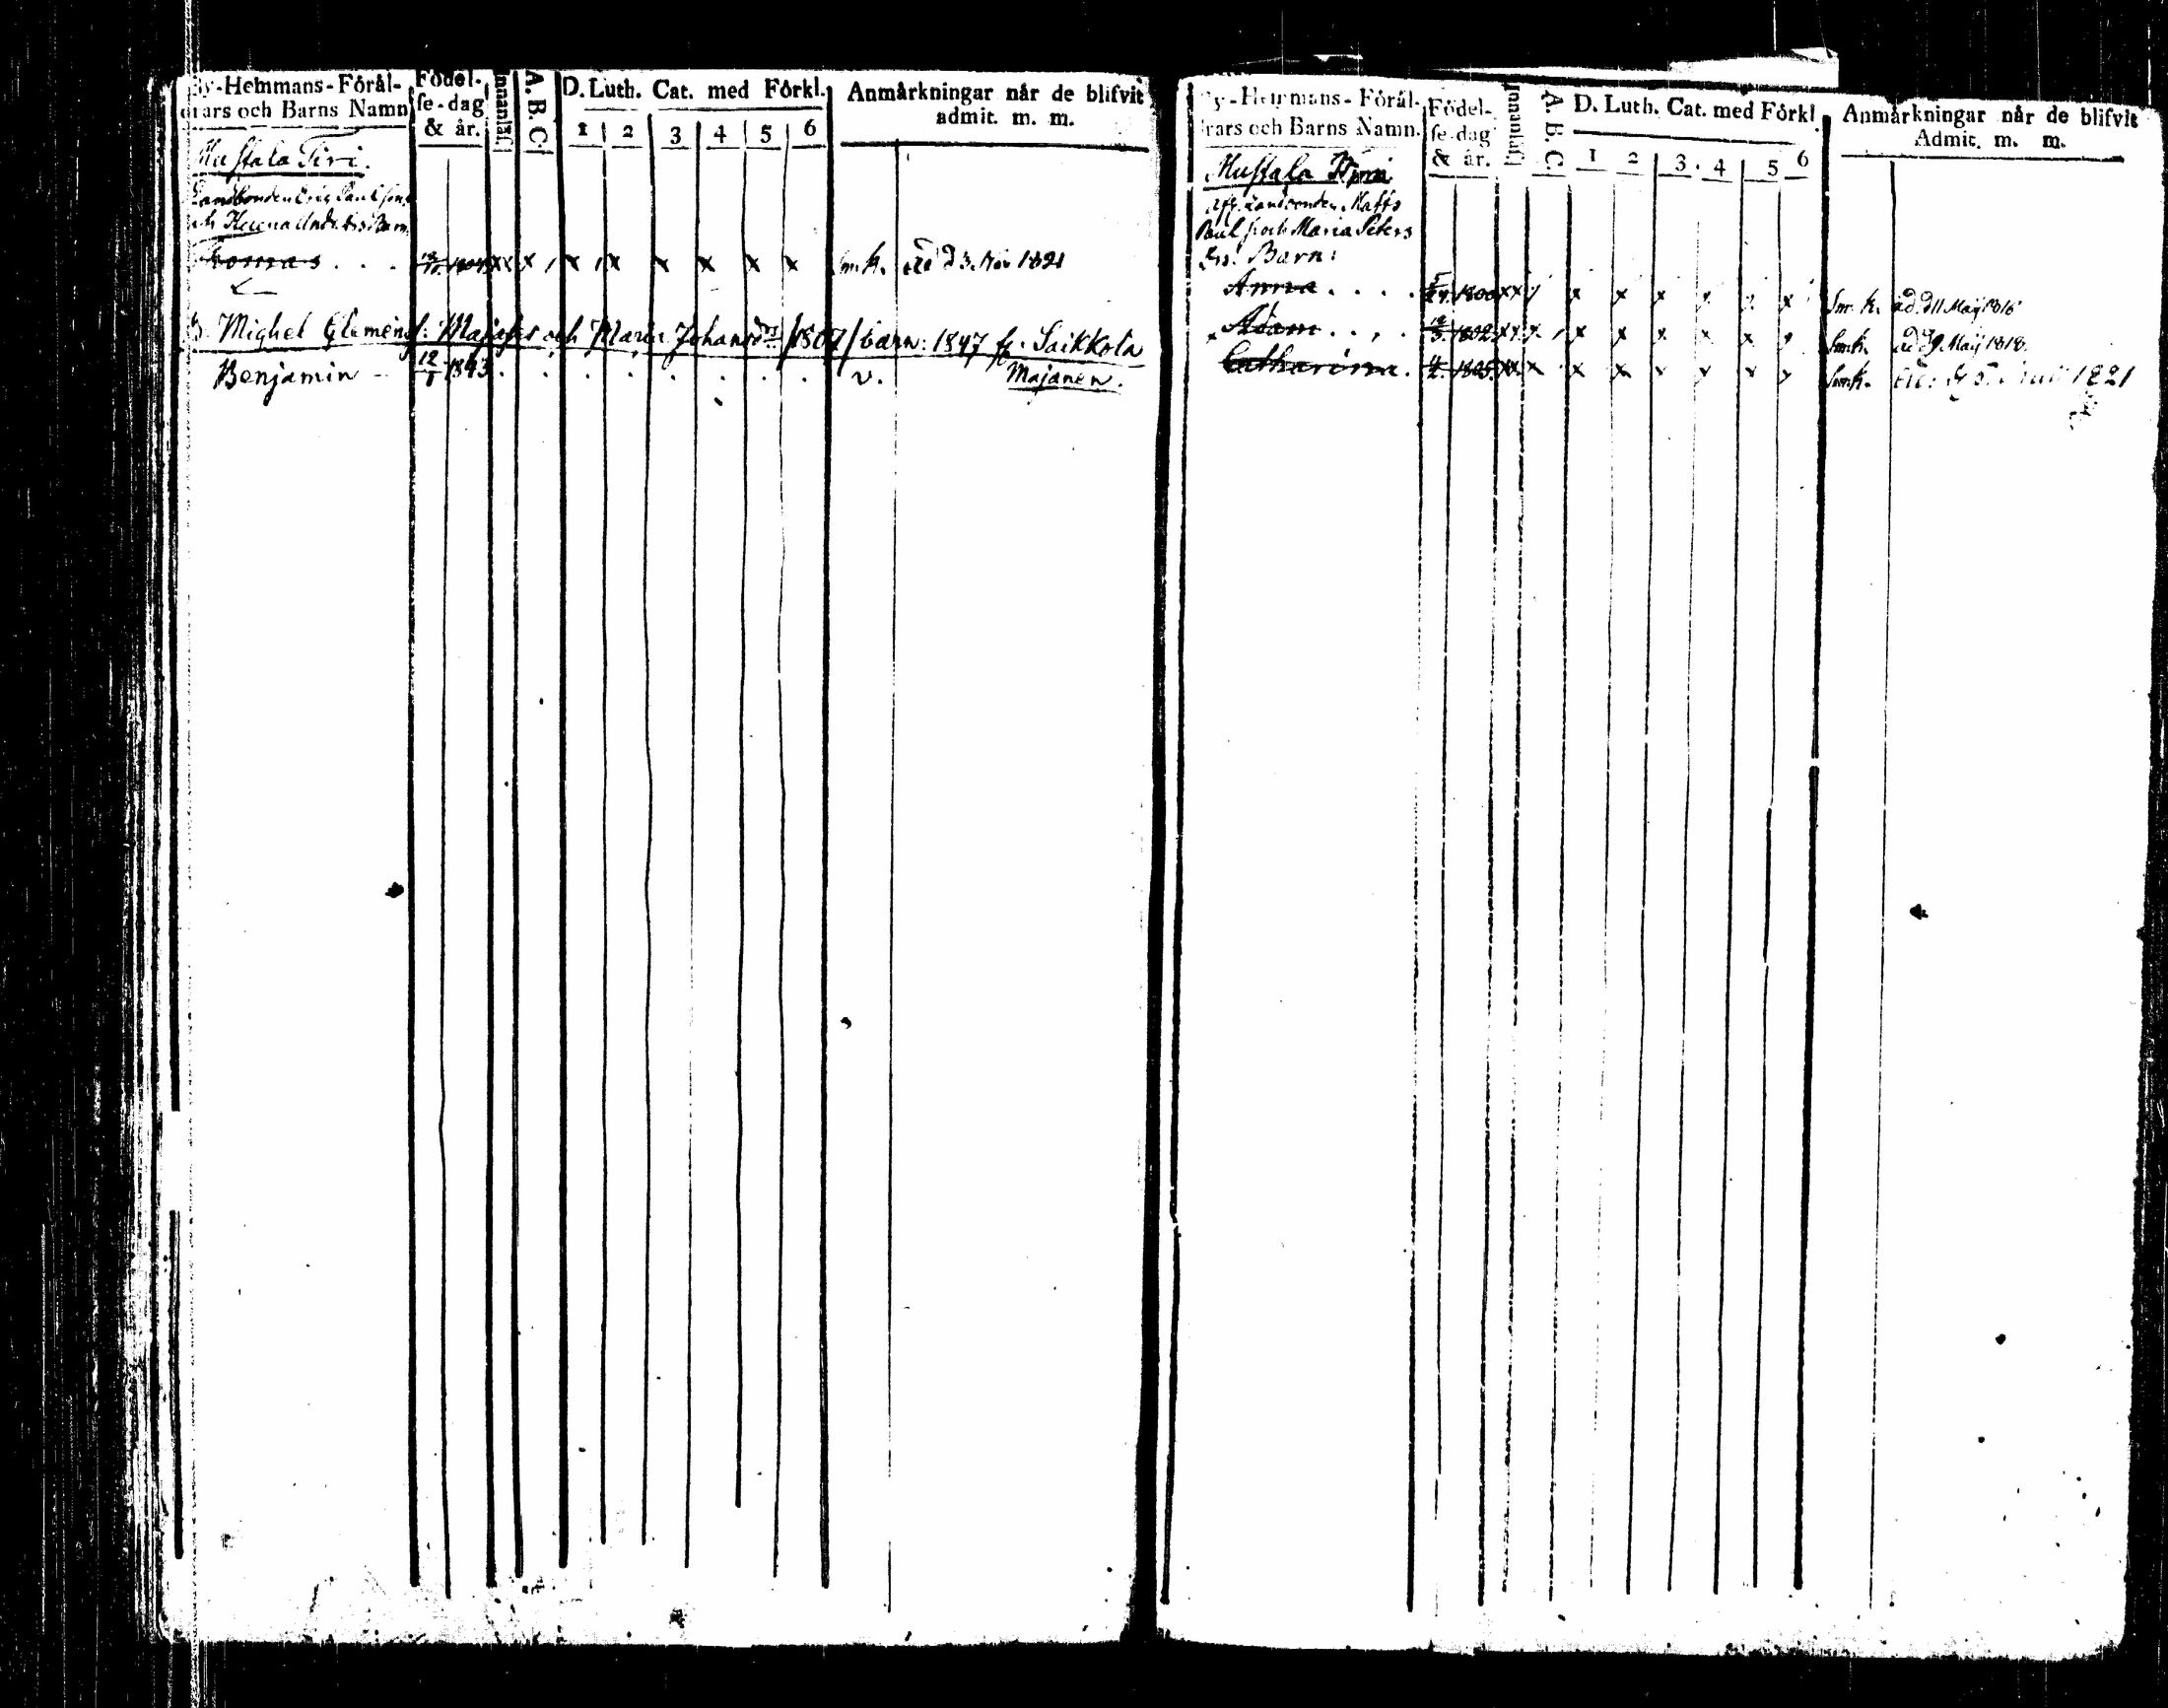 By-Hemmans-Föräl-
drars och Barns Namn
Födel-
se-dag
& år.
Innanläs.
A. B. C.
D. Luth. Cat. med Förkl.
1 2 3 4 5 6
Anmärkningar når de blifvit
admit. m. m.
Mustala Tiri.
Landbonden Eric Paulsons
och Helena Ands. drs Barn
Thomas . . . 1804 x x x x x x x x Smk. ad d 3. 1821
B. Mighel Clemens: Majases och Maria Johansdr /1807/ barn: 1847 fr. Saikkola
Majanen.
Benjamin - 12/1 1843 . . . . . . . v.
By-Hemmans-Föräl-
drars och Barns Namn.
Födel-
se-dag
& år.
Innanläs.
A. B. C.
D. Luth. Cat. med Förkl.
1 2 3 4 5 6
Anmärkningar når de blifvit
Admit. m. m.
Mustala Tiri
Afl. Landbonden Matts
Paulss. och Maria Peters
drs. Barn:
Anna . . . . 1800 x x x x x x x x Smk. ad d 11 Maij 1816
Adam . . . 1802 x x x x x x x Smk. ad d 9 Maij 1818.
Catharina . 1805 x x x x x x x Smk. 1821